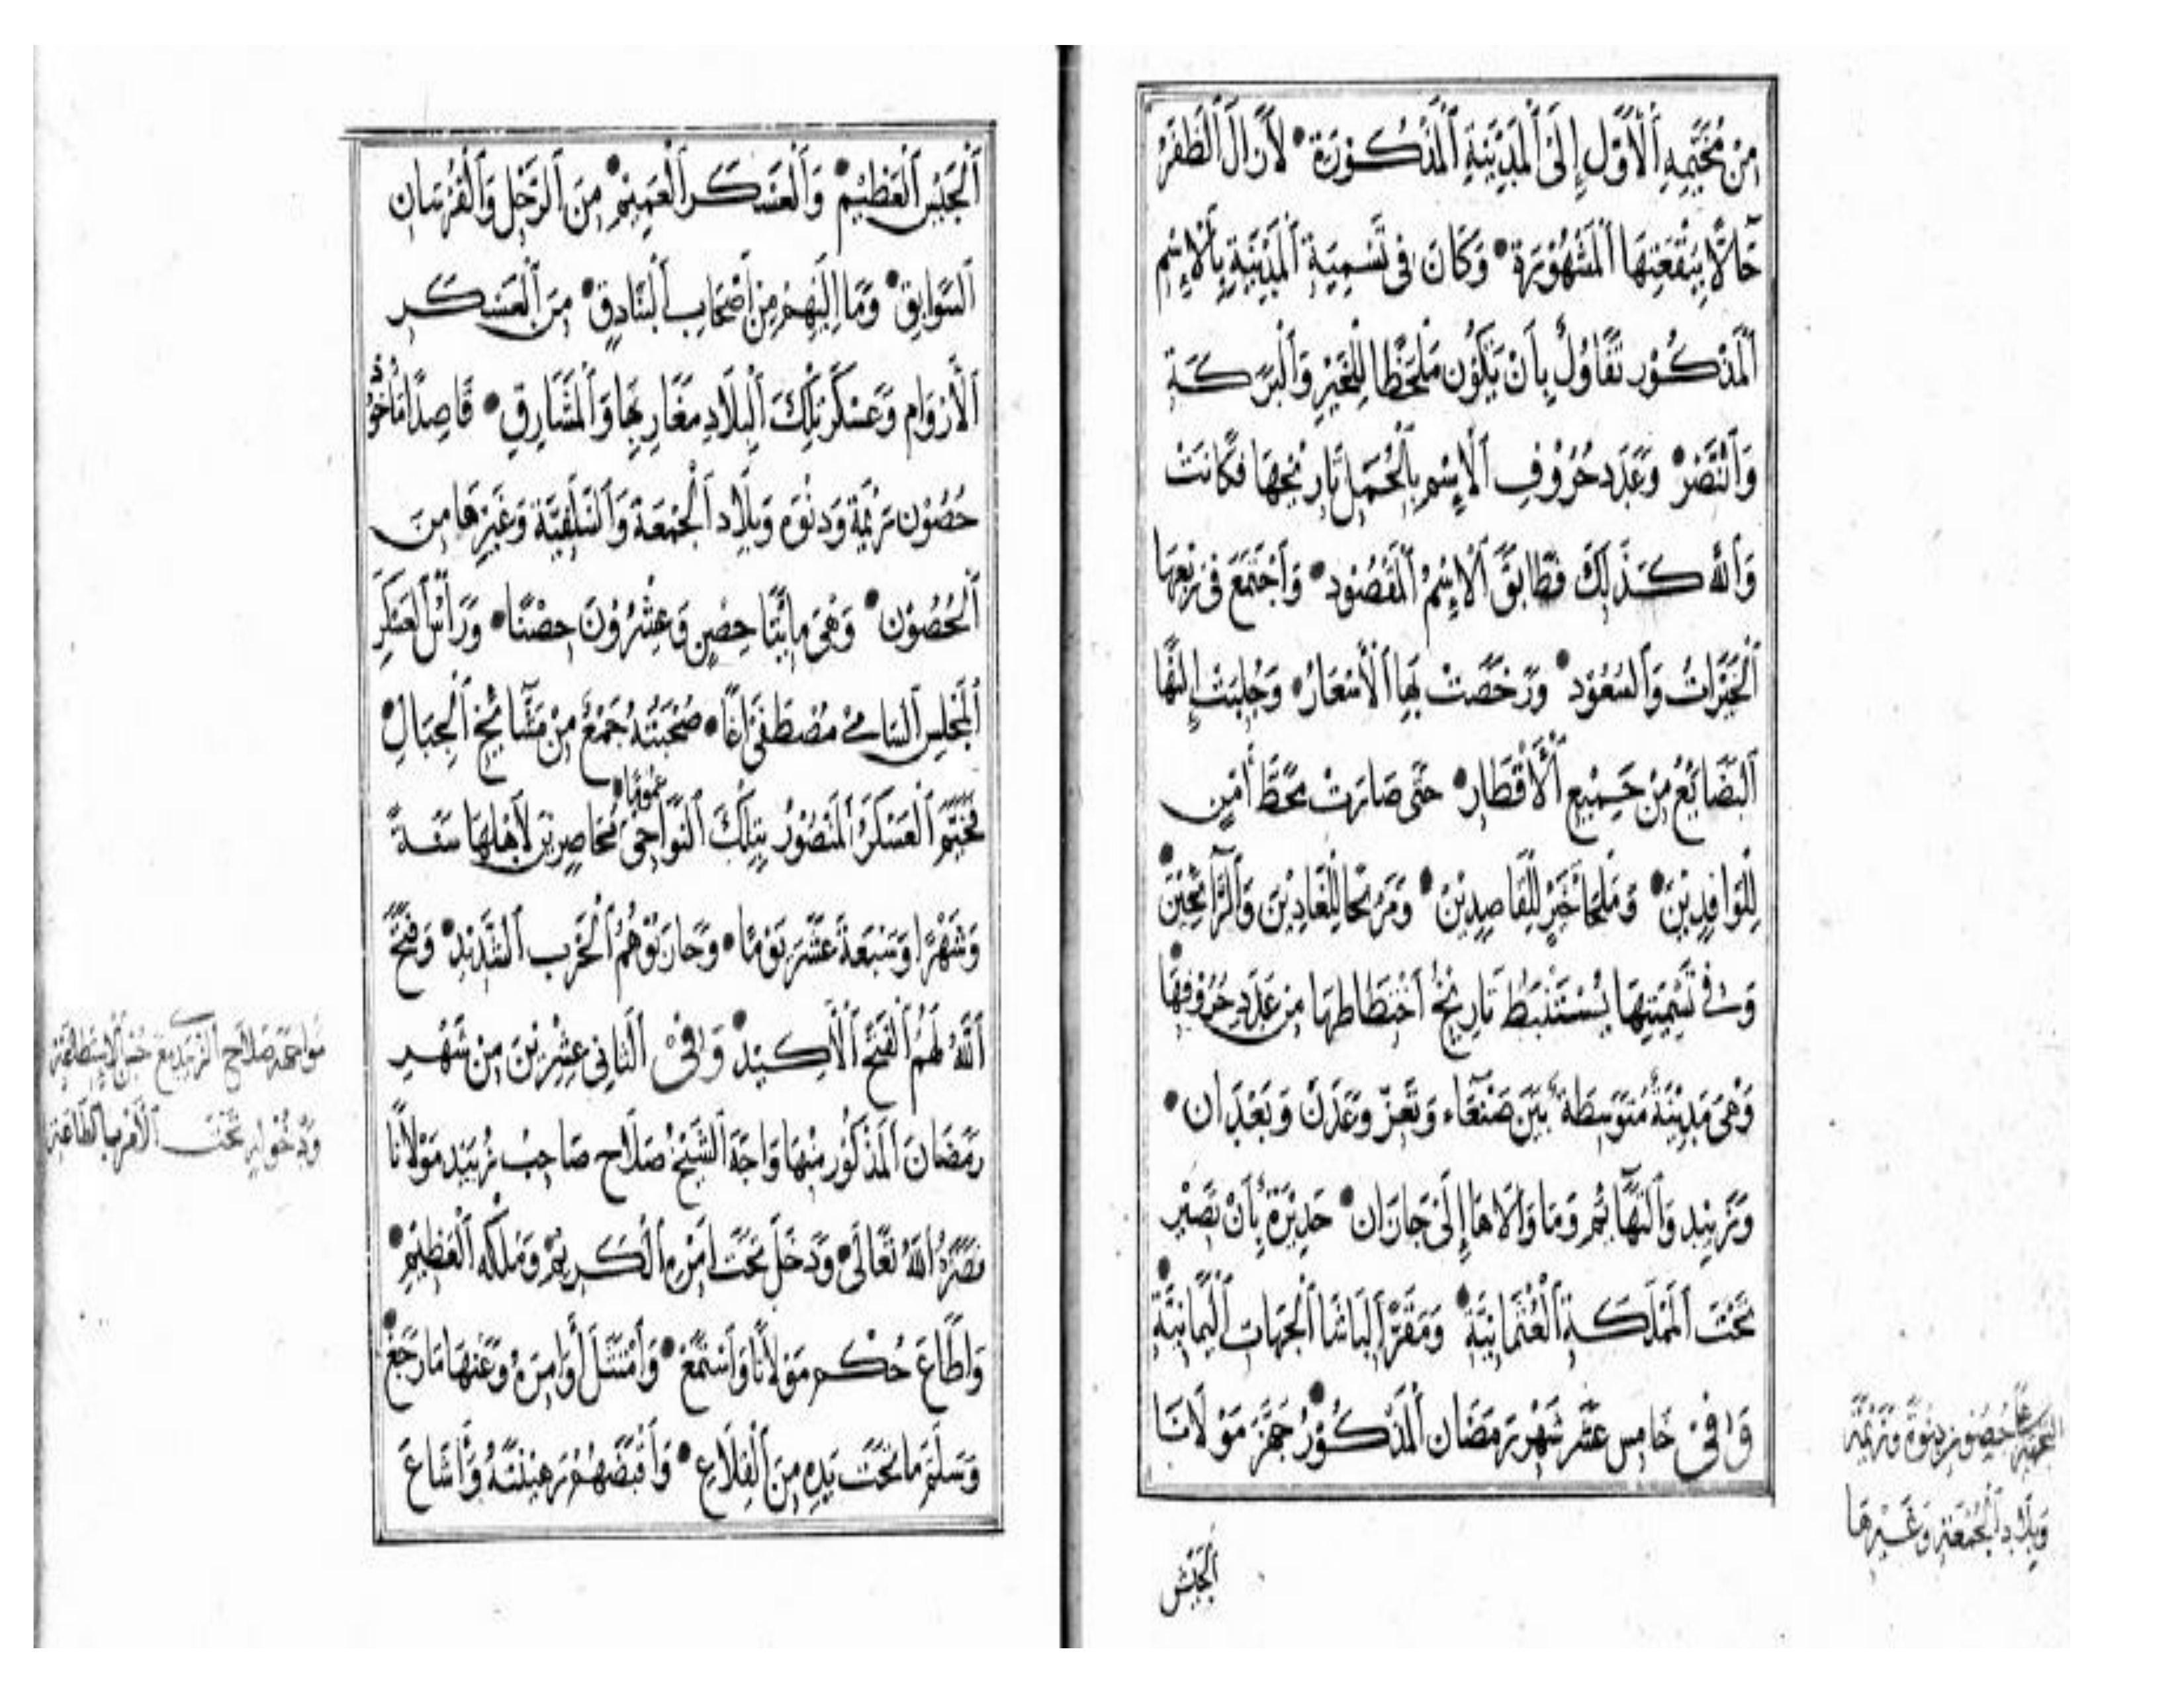 مِنْ مُخَيَّمِهِ ٱلْأَوَّلِ إِلَى ٱلْمَدِيْنَةِ ٱلْمَذْكُوْرَةِ • لَازَالَ ٱلظَّفَرُ
حَالًّا بِبُقْعَتِهَا ٱلْمَشْهُوْرَةِ • وَكَانَ فِى تَسْمِيَةِ ٱلْمَدِيْنَةِ بِٱلْإِسْمِ
ٱلْمَذْكُوْر تَفَاؤُلٌ بِأَنْ يَكُوْنَ مَلْحَظًا لِلْخَيْرِ وَٱلْبَرَكَةِ
وَٱلنَّصْرِ • وَعَدَد حُرُوْفِ ٱلْإِسْمِ بِٱلْجُمَلِ تَارِيْخُهَا فَكَانَتْ
وَٱللّٰه كَذٰلِكَ فَطَابَقَ ٱلْإِسْمُ ٱلْمَقْصُوْد • وَٱجْتَمَعَ فِى رَبْعِهَا
ٱلْخَيْرَاتُ وَٱلسُّعُوْد • وَرَخُصَتْ بِهَا ٱلْأَسْعَارُ • وَجُلِبَتْ إِلَيْهَا
ٱلْبَضَائِعُ مِنْ جَمِيْعِ ٱلْأَقْطَارِ • حَتَّى صَارَتْ مَحَطَّ أَمْنٍ
لِلْوَافِدِيْنَ • وَمَلْجَأَ خَيْرٍ لِلْقَاصِدِيْنَ • وَمَرْبَحًا لِلْغَادِيْنَ وَٱلرَّائِحِيْنَ •
وَفِى تَسْمِيَتِهَا يُسْتَنْبَطُ تَارِيْخُ ٱخْتِطَاطِهَا مِنْ عَدَدِ حُرُوْفِهَا •
وَهْىَ مَدِيْنَةٌ مُتَوَسِّطَةٌ بَيْنَ صَنْعَآء وَتَعِزّ وَعَدَنْ وَبَعْدَان •
وَزَبِيْد وَٱلتَّهَآئِم وَمَا وَالَاهَا إِلَى جَازَان • جَدِيْرَةٌ بِأَنْ تَصِيْر
تَحْتَ ٱلْمَمْلَكَةِ ٱلْعُثْمَانِيَّةِ • وَمَقَرَّ ٱلْبَاشَا ٱلْجِهَات ٱلْيَمَانِيَّةِ •
وَفِىْ خَامِس عَشَر شَهْر رَمَضَان ٱلْمَذْكُوْر جَهَّزَ مَوْلَانَا
حُصُون دنوة وتريمة
وَبِلَاد ٱلْجُمْعَةِ وَغَيْرِهَا
ٱلْجَيْش
ٱلْجَيْشَ ٱلْعَظِيْمَ • وَٱلْعَسْكَر ٱلْعَمِيْمَ • مِنَ ٱلرَّجْلِ وَٱلْفُرْسَان
ٱلسَّوَابِقِ • وَمَا إِلَيْهِمْ مِنْ أَصْحَابِ ٱلْبَنَادِقِ • مِنَ ٱلْعَسْكَرِ
ٱلْأَرْوَام وَعَسْكَر تِلْكَ ٱلْبِلَادِ مَغَارِبِهَا وَٱلْمَشَارِقِ • قَاصِدًا مَأْخُوْذ
حُصُوْن تريمة وَدنوة وَبِلَاد ٱلْجُمْعَة وَٱلسَّلَفِيَّة وَغَيْرِهَا مِنَ
ٱلْحُصُوْن • وَهْىَ مِائَتَا حِصْنٍ وَعِشْرُوْنَ حِصْنًا • وَرَأْسُ ٱلْعَسْكَر
ٱلْمَجْلِس ٱلسَّامِىْ مُصْطَفَى أَغَا • صُحْبَتُهُ جَمْعٌ مِنْ مَشَائِخِ ٱلْجِبَالِ •
عُمُوْمًا •
فَخَيَّمَ ٱلْعَسْكَرُ ٱلْمَنْصُوْرُ بِتِلْكَ ٱلنَّوَاحِى مُحَاصِرِيْنَ لِأَهْلِهَا سَنَةً
وَشَهْرًا وَسَبْعَةَ عَشَرَ يَوْمًا • وَحَارَبُوْهُمُ ٱلْحَرْبَ ٱلشَّدِيْدَ • وَفَتَحَ
ٱللّٰهُ لَهُمُ ٱلْفَتْحَ ٱلْأَكِيْدَ • وَفِىْ ٱلثَّانِى عِشْرِيْنَ مِنْ شَهْرِ
رَمَضَانَ ٱلْمَذْكُوْر مِنْهَا وَاجَهَ ٱلشَّيْخُ صَلَاح صَاحِبُ ثُرَيْد مَوْلَانَا
نَصَرَهُ ٱللّٰهُ تَعَالَى • وَدَخَلَ تَحْتَ أَمْرِهِ ٱلْكَرِيْمِ وَمُلْكِهِ ٱلْعَظِيْمِ •
وَأَطَاعَ حُكْمَ مَوْلَانَا وَٱسْتَمَعَ • وَٱمْتَثَلَ أَوَامِرَهُ وَعَنْهَا مَا رَجَعَ •
وَسَلَّمَ مَا تَحْتَ يَدِهِ مِنَ ٱلْقِلَاعِ • وَأَقْبَضَهُمْ رَهِيْنَتَهُ وَأَشَاعَ
مواجهة صلاح
ودخوله تحت الأمر بالطاعة